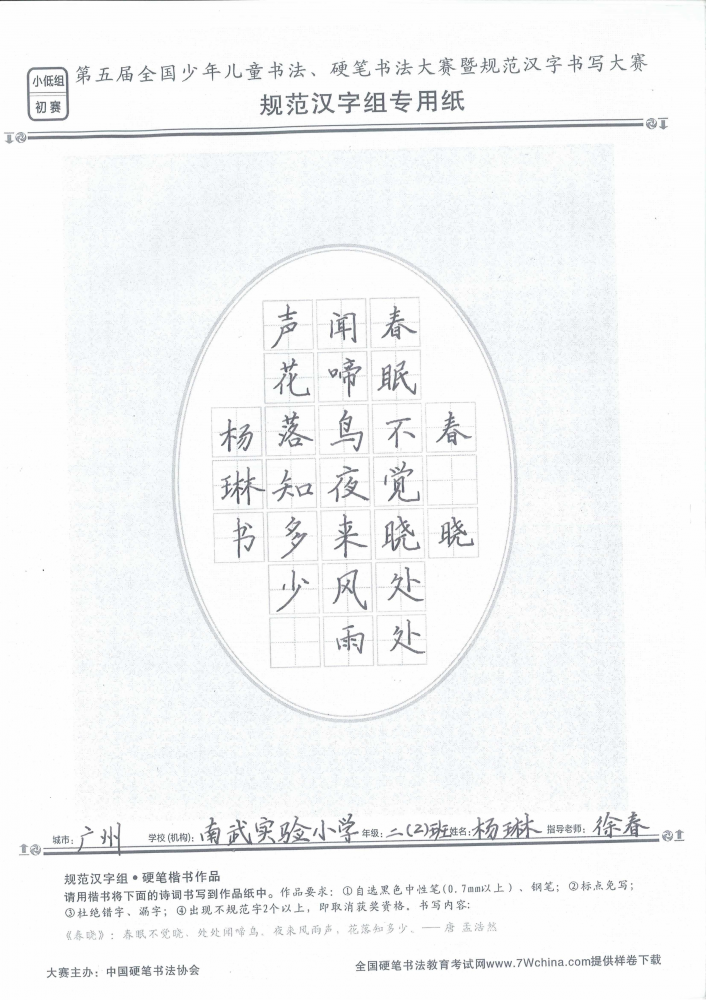 小低组
初赛
第五届全国少年儿童书法、硬笔书法大赛暨规范汉字书写大赛
规范汉字组专用纸
春晓
春眠不觉晓处处
闻啼鸟夜来风雨
声花落知多少
杨琳书
城市：广州 学校(机构)：南武实验小学 年级：二(2)班 姓名：杨琳 指导老师：徐春
规范汉字组•硬笔楷书作品
请用楷书将下面的诗词书写到作品纸中。作品要求：①自选黑色中性笔(0.7mm以上）、钢笔；②标点免写；
③杜绝错字、漏字；④出现不规范字2个以上，即取消获奖资格。书写内容：
《春晓》：春眠不觉晓，处处闻啼鸟，夜来风雨声，花落知多少。——唐 孟浩然
大赛主办：中国硬笔书法协会
全国硬笔书法教育考试网www.7Wchina.com提供样卷下载